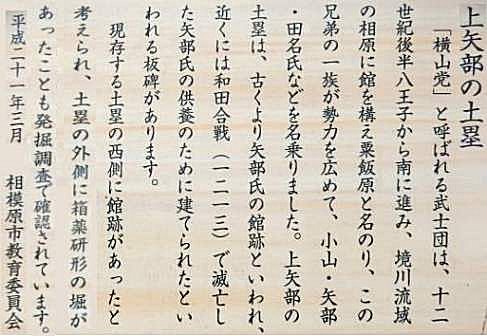 上矢部の土塁
「横山党」と呼ばれる武士団は、十二
世紀後半八王子から南に進み、境川流域
の相原に館を構え粟飯原と名のり、この
兄弟の一族が勢力を広めて、小山・矢部
・田名氏などを名乗りました。上矢部の
土塁は、古くより矢部氏の館跡といわれ、
近くには和田合戦（一二一三）で滅亡し
た矢部氏の供養のために建てられたとい
われる板碑があります。
現存する土塁の西側に館跡があったと
考えられ、土塁の外側に箱薬研形の堀が
あったことも発掘調査で確認されています。
平成二十一年三月　相模原市教育委員会